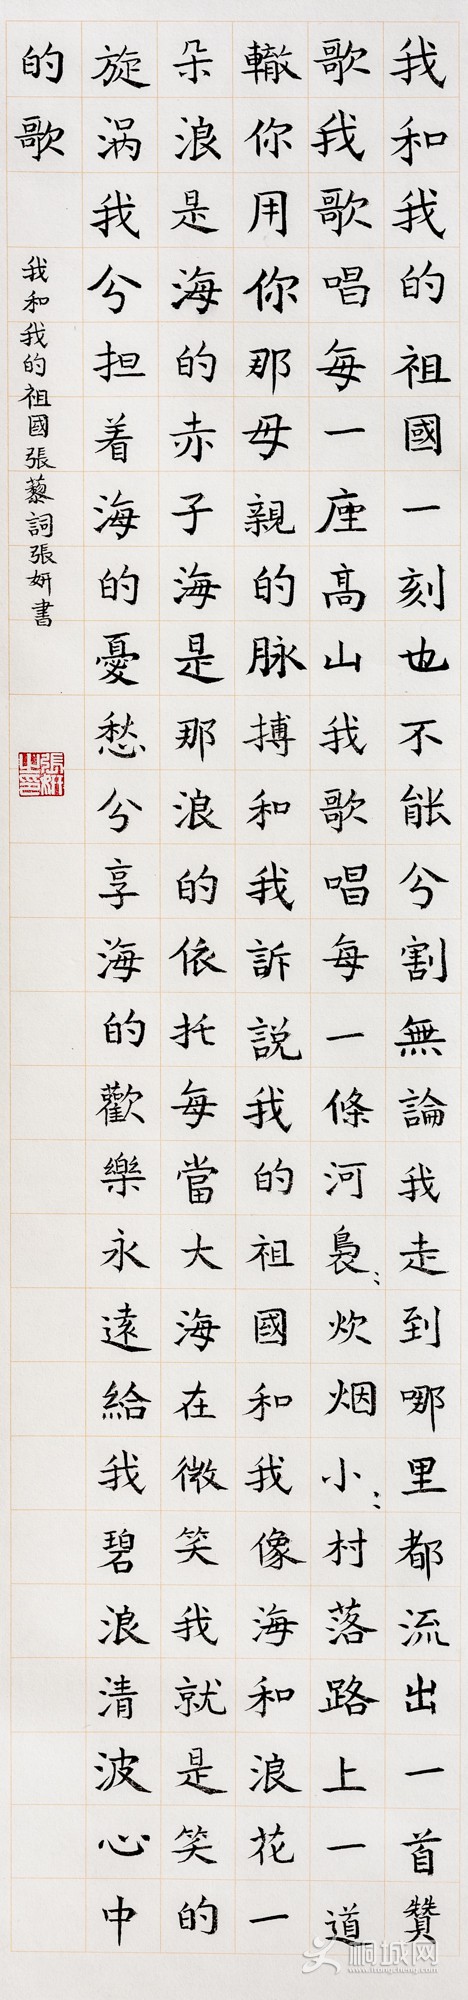 我和我的祖國一刻也不能兮割無論我走到哪里都流出一首贊
歌我歌唱每一座高山我歌唱每一條河裊〻炊烟小〻村落路上一道
轍你用你那母親的脉搏和我訴說我的祖國和我像海和浪花一
朵浪是海的赤子海是那浪的依托每當大海在微笑我就是笑的
旋涡我兮担着海的憂愁兮享海的歡樂永遠給我碧浪清波心中
的歌
我和我的祖國張藜詞張妍書
張妍之印
桐城网
www.itongcheng.com